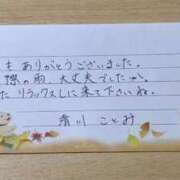 もありがとうございました。
際の雨、大丈夫でしたか。
たリラックスしに来て下さいね。
香川 ことみ